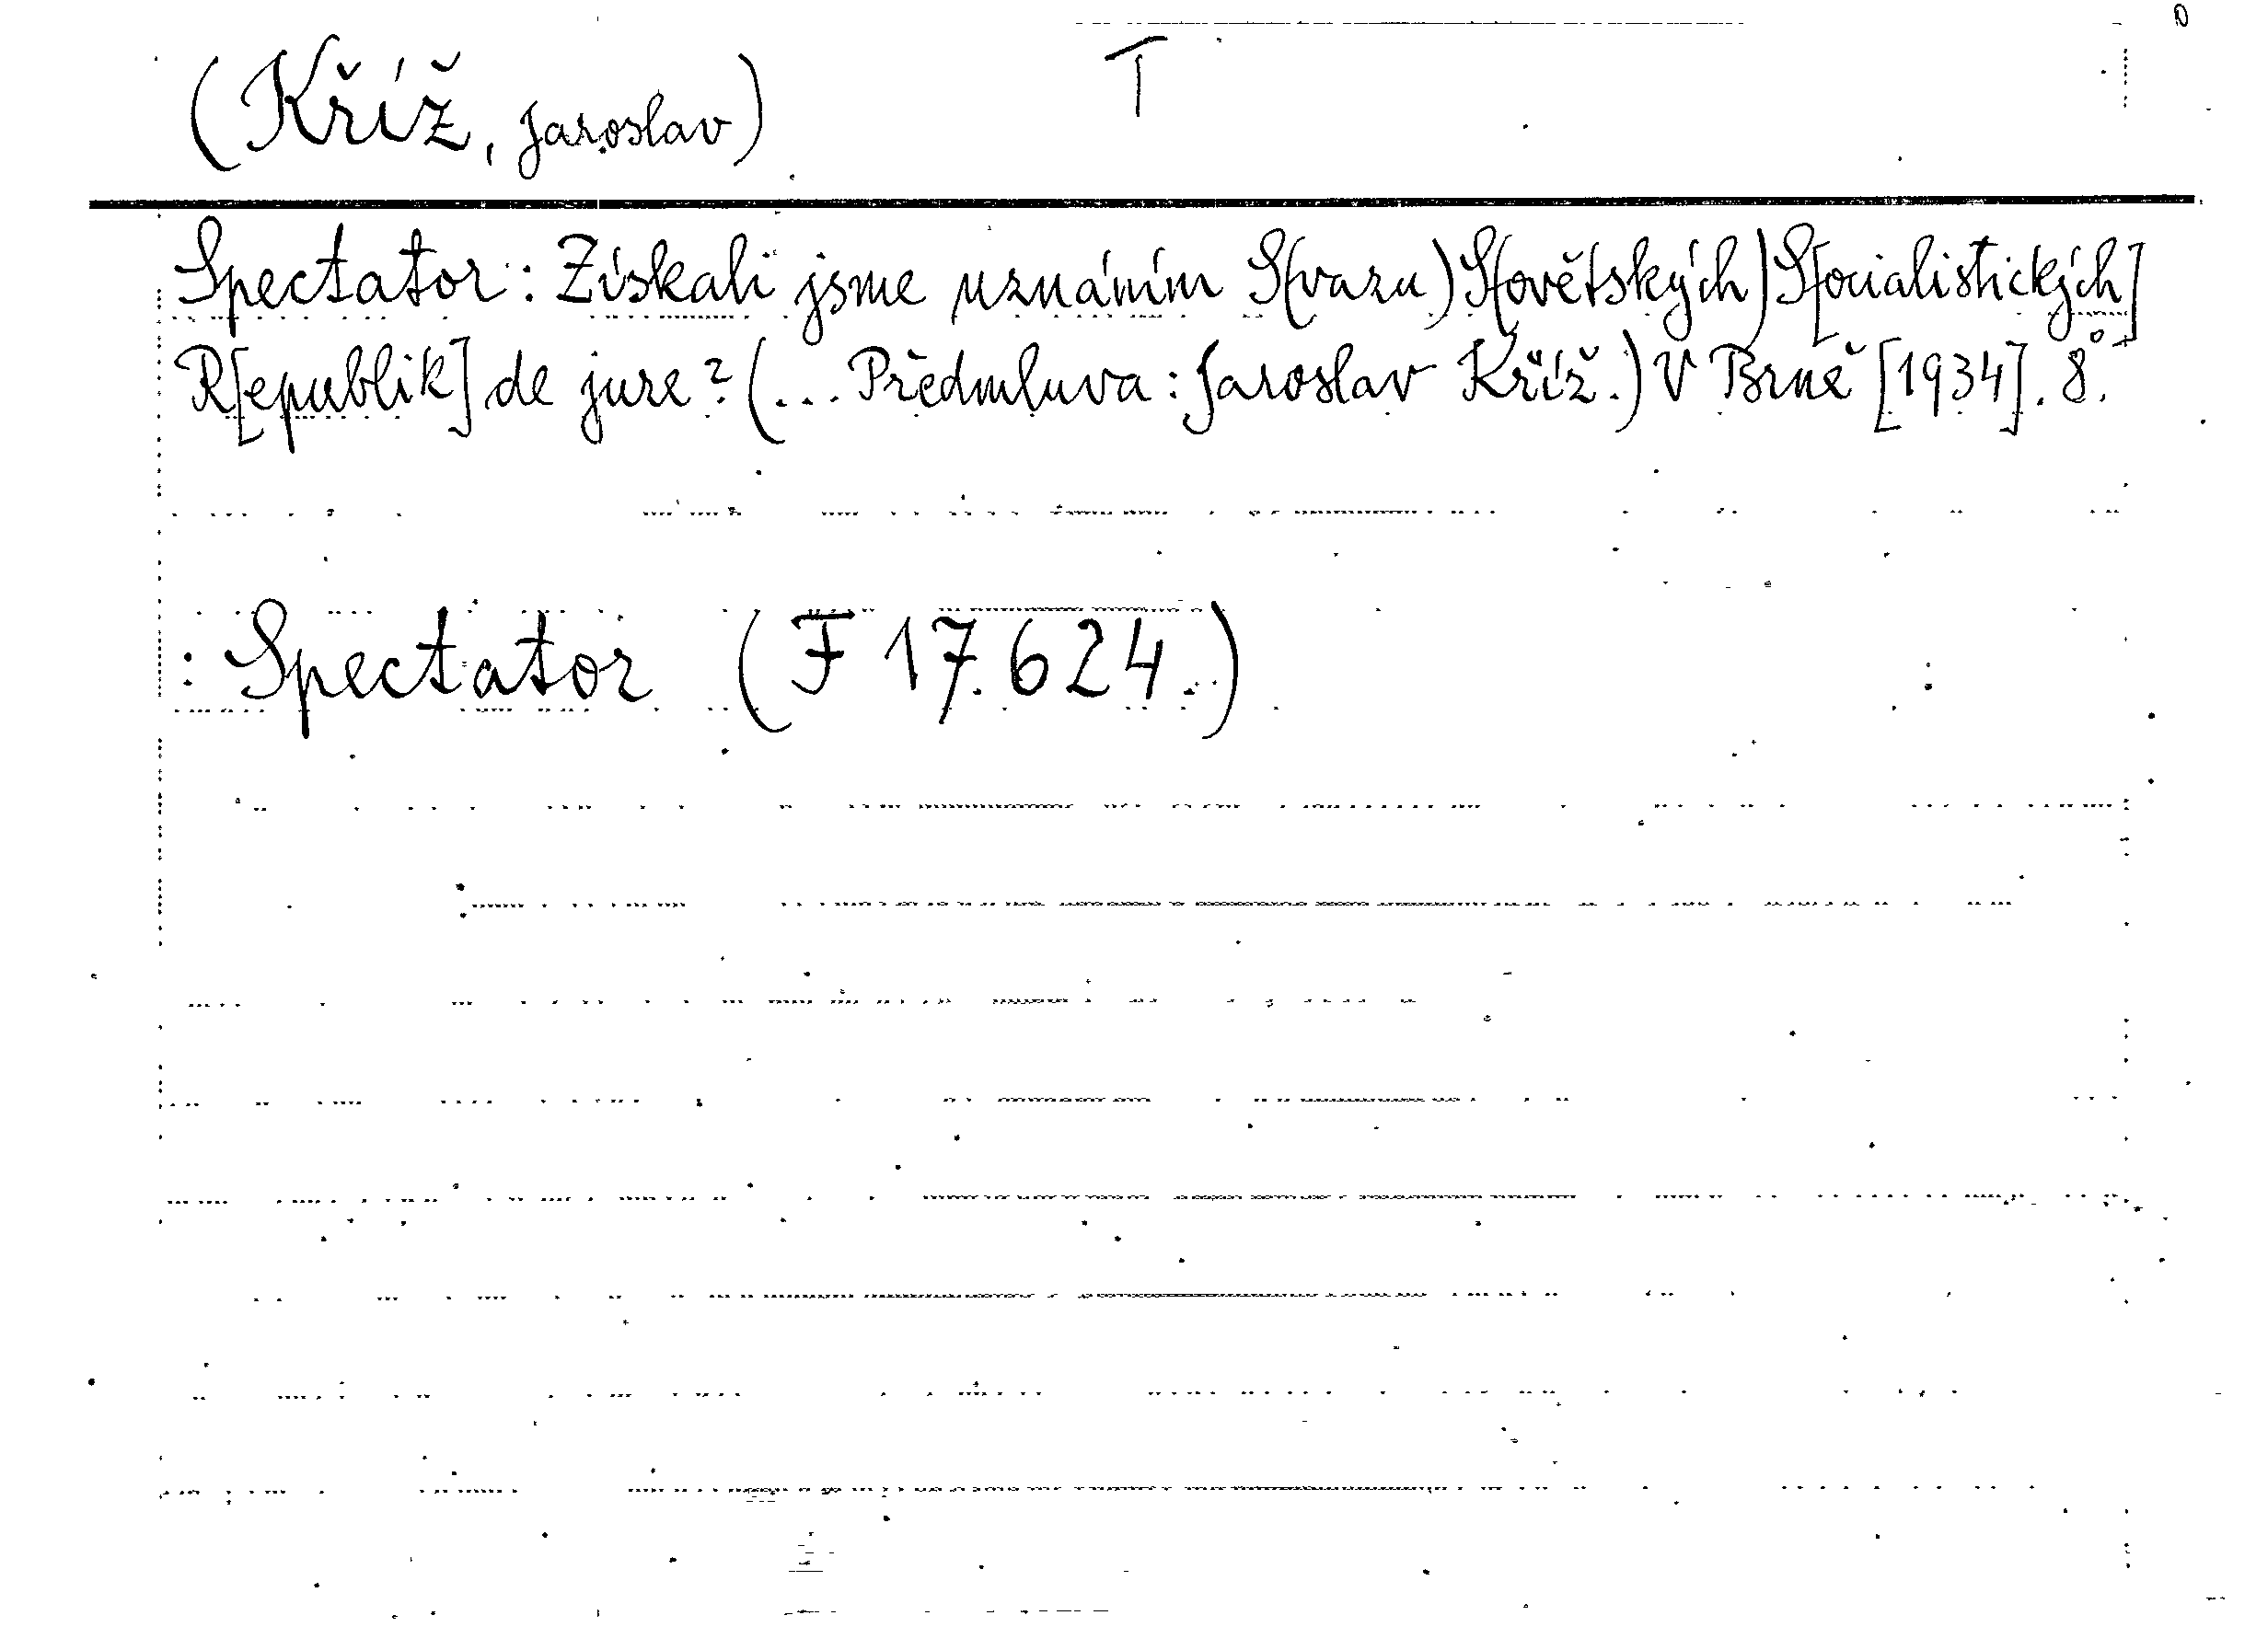 (Kříž, Jaroslav) T
Spectator: Získali jsme uznáním S(vazu) S(ovětských) S[ocialistických]
R[epublik] de jure? (... Předmluva: Jaroslav Kříž.) V Brně [1934]. 8°.
: Spectator (F 17.624.)